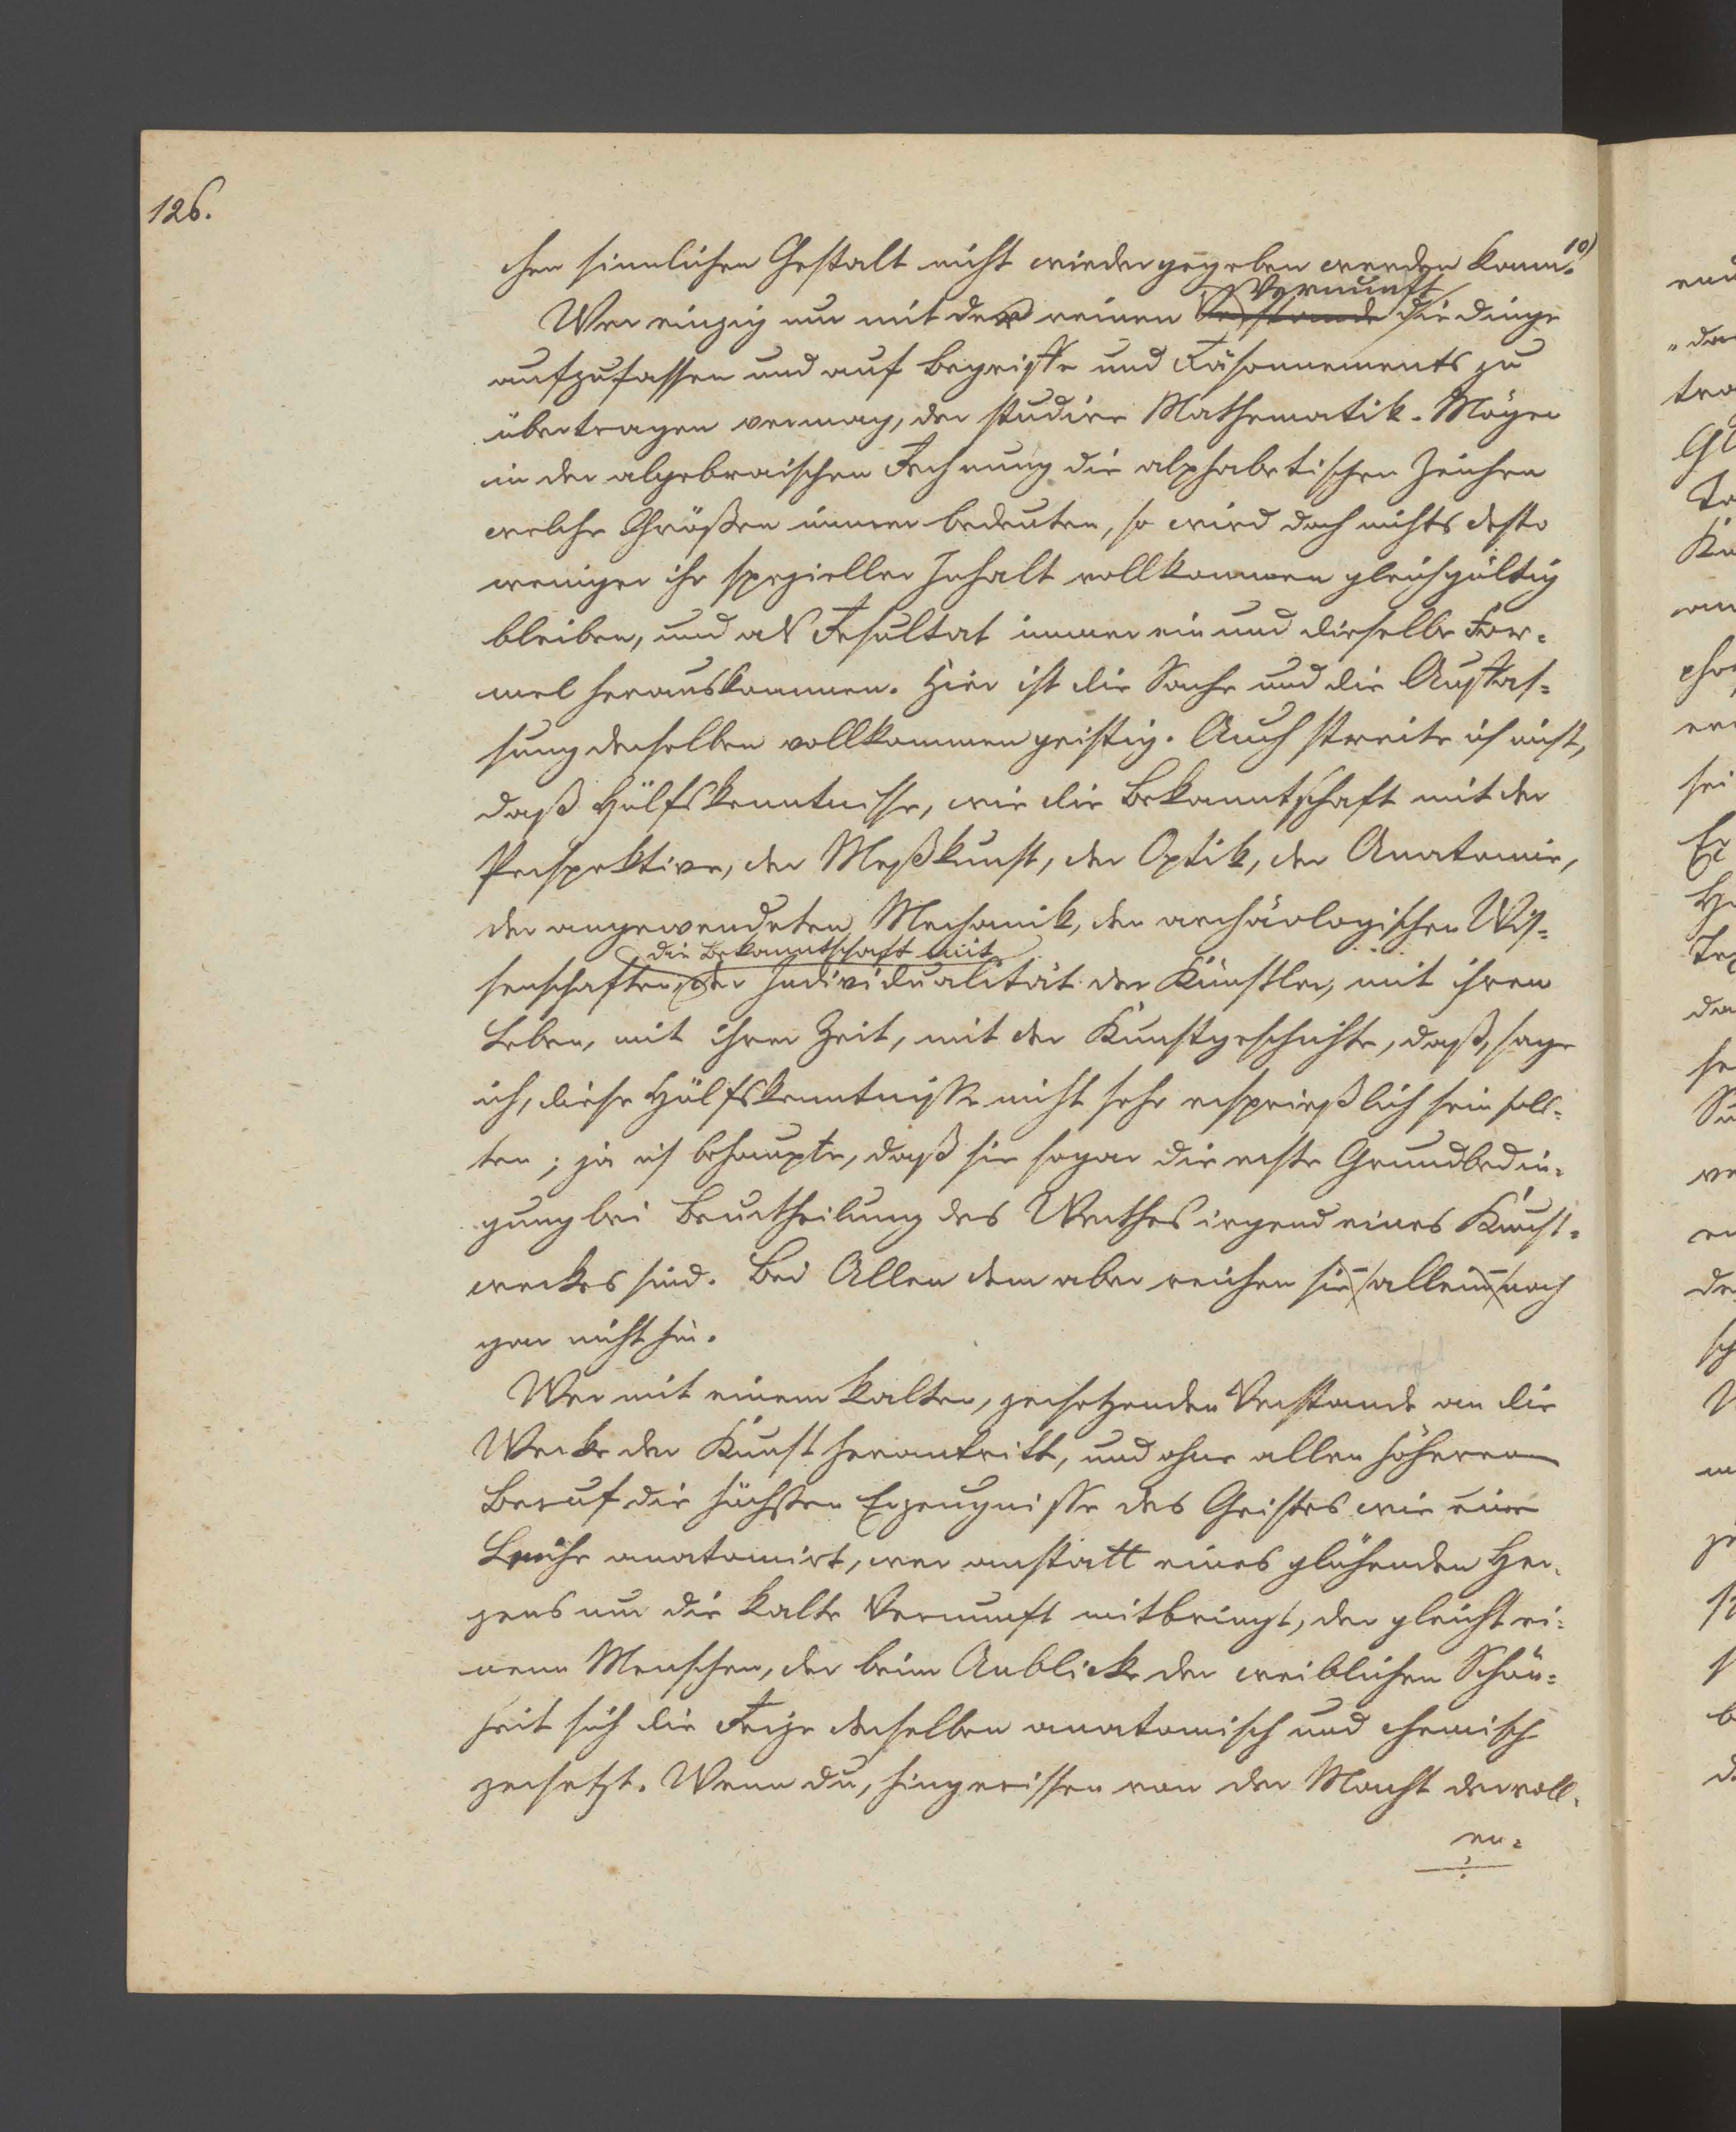 126.
chen sinnlichen Gestalt nicht wiedergegeben werden kann.10)
Vernunft
Wer einzig nur mit der reinen Verstande die Dinge
aufzufassen und auf Begriffe und Räsonnements zu
übertragen vermag, der studire Mathematik. Mögen
in der algebraischen Rechnung die alphabetischen Zeichen
welche Größen immer bedeuten, so wird doch nichts desto
weniger ihr spezieller Inhalt vollkommen gleichgültig
bleiben, und als Resultat immer ein und dieselbe For-
mel herauskommen. Hier ist die Sache und die Auffas-
sung derselben vollkommen geistig. Auch streite ich nicht,
daß Hülfskenntnisse, wie die Bekanntschaft mit der
Perspektive, der Meßkunst, der Optik, der Anatomie,
der angewendeten Mechanik, der archäologischen Wis-
die Bekanntschaft mit
senschaften, der Individualität der Künstler, mit ihrem
Leben, mit ihrer Zeit, mit der Kunstgeschichte, daß, sage
ich, diese Hülfskenntnisse nicht sehr ersprießlich sein soll-
ten; ja ich behaupte, daß sie sogar die erste Grundbedin-
gung bei Beurtheilung des Werthes irgend eines Kunst-
werkes sind. Bei Allen dem aber reichen sie allein noch
gar nicht hin.
Wer mit einem kalten, zersetzenden Verstande an die
Werke der Kunst herantritt, und ohne allen höheren
Beruf die höchsten Erzeugnisse des Geistes wie eine
Leiche anatomirt, wer anstatt eines glühenden Her-
zens nur die kalte Vernunft mitbringt, der gleicht ei-
nem Menschen, der beim Anblicke der weiblichen Schön-
heit sich die Reize derselben anatomisch und chemisch
zersetzt. Wenn du, hingerissen von der Macht der voll-
en-